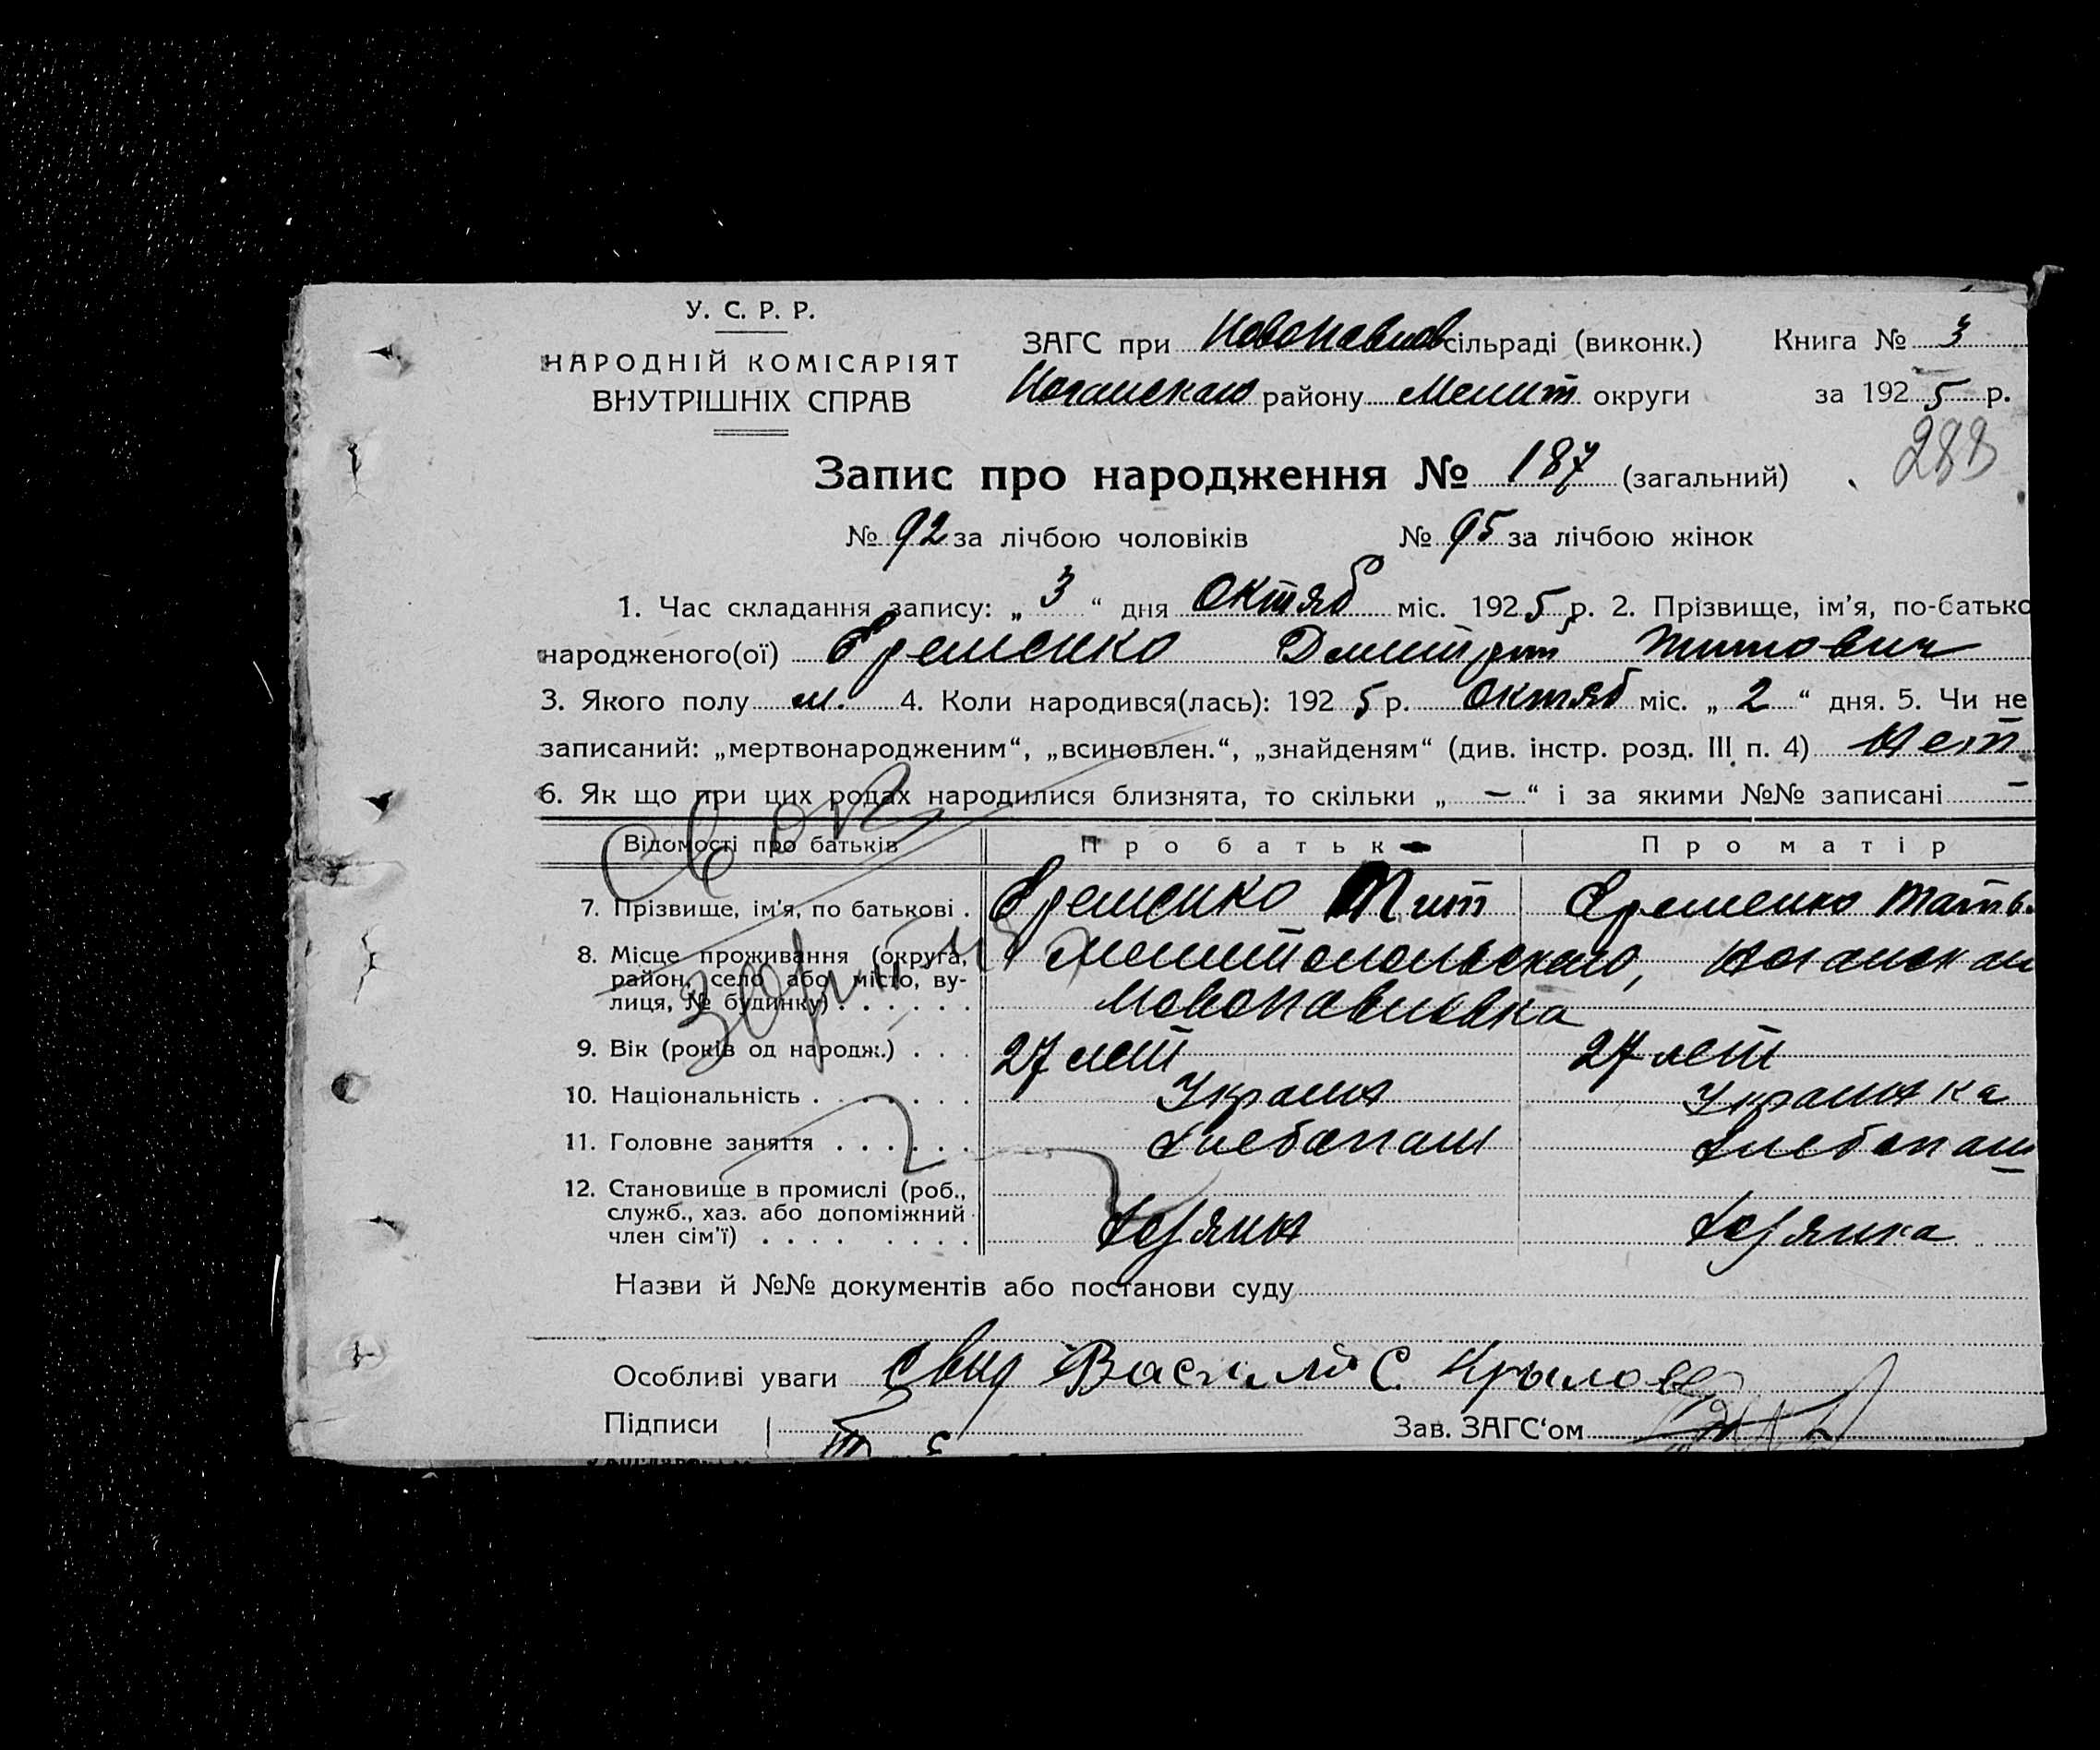 У. С. Р. Р.
НАРОДНІЙ КОМІСАРІЯТ
ВНУТРІШНІХ СПРАВ
ЗАГС при Новопавлов сільраді (виконк.) Книга № 3
Ногайскаго району Мелит округи за 1925 р.
288
Запис про народження № 187 (загальний)
№ 92 за лічбою чоловіків № 95 за лічбою жінок
1. Час складання запису: „ 3 “ дня Октяб міс. 1925 р. 2. Прізвище, ім'я, по-батько
народженого(ої) Еременко Дмитрий Титович
3. Якого полу м. 4. Коли народився(лась): 1925 р. Октяб міс. „ 2 “ дня. 5. Чи не
записаний: „мертвонародженим“, „всиновлен.“, „знайденям“ (див. інстр. розд. III п. 4) Нет
6. Як що при цих родах народилися близнята, то скільки „ — “ і за якими №№ записані —
Відомості про батьків Про батьк Про матір
7. Прізвище, ім'я, по батькові . Еременко Тит Еременко Татья
8. Місце проживання (округа, Мелитопольскаго, Ногайскаго
район, село або місто, ву-
лиця, № будинку) . . . . . . Новопавловка
9. Вік (років од народж.) . . . 27 лет 27 лет
10. Національність . . . . . . . Украин Украинка
11. Головне заняття . . . . . . Хлебопаш Хлебопаш
12. Становище в промислі (роб.,
служб., хаз. або допоміжний Хозяин Хозяйка
член сім'ї) . . . . . . . .
Назви й №№ документів або постанови суду
Особливі уваги Свид Василий С. Крылов
Підписи Зав. ЗАГС'ом